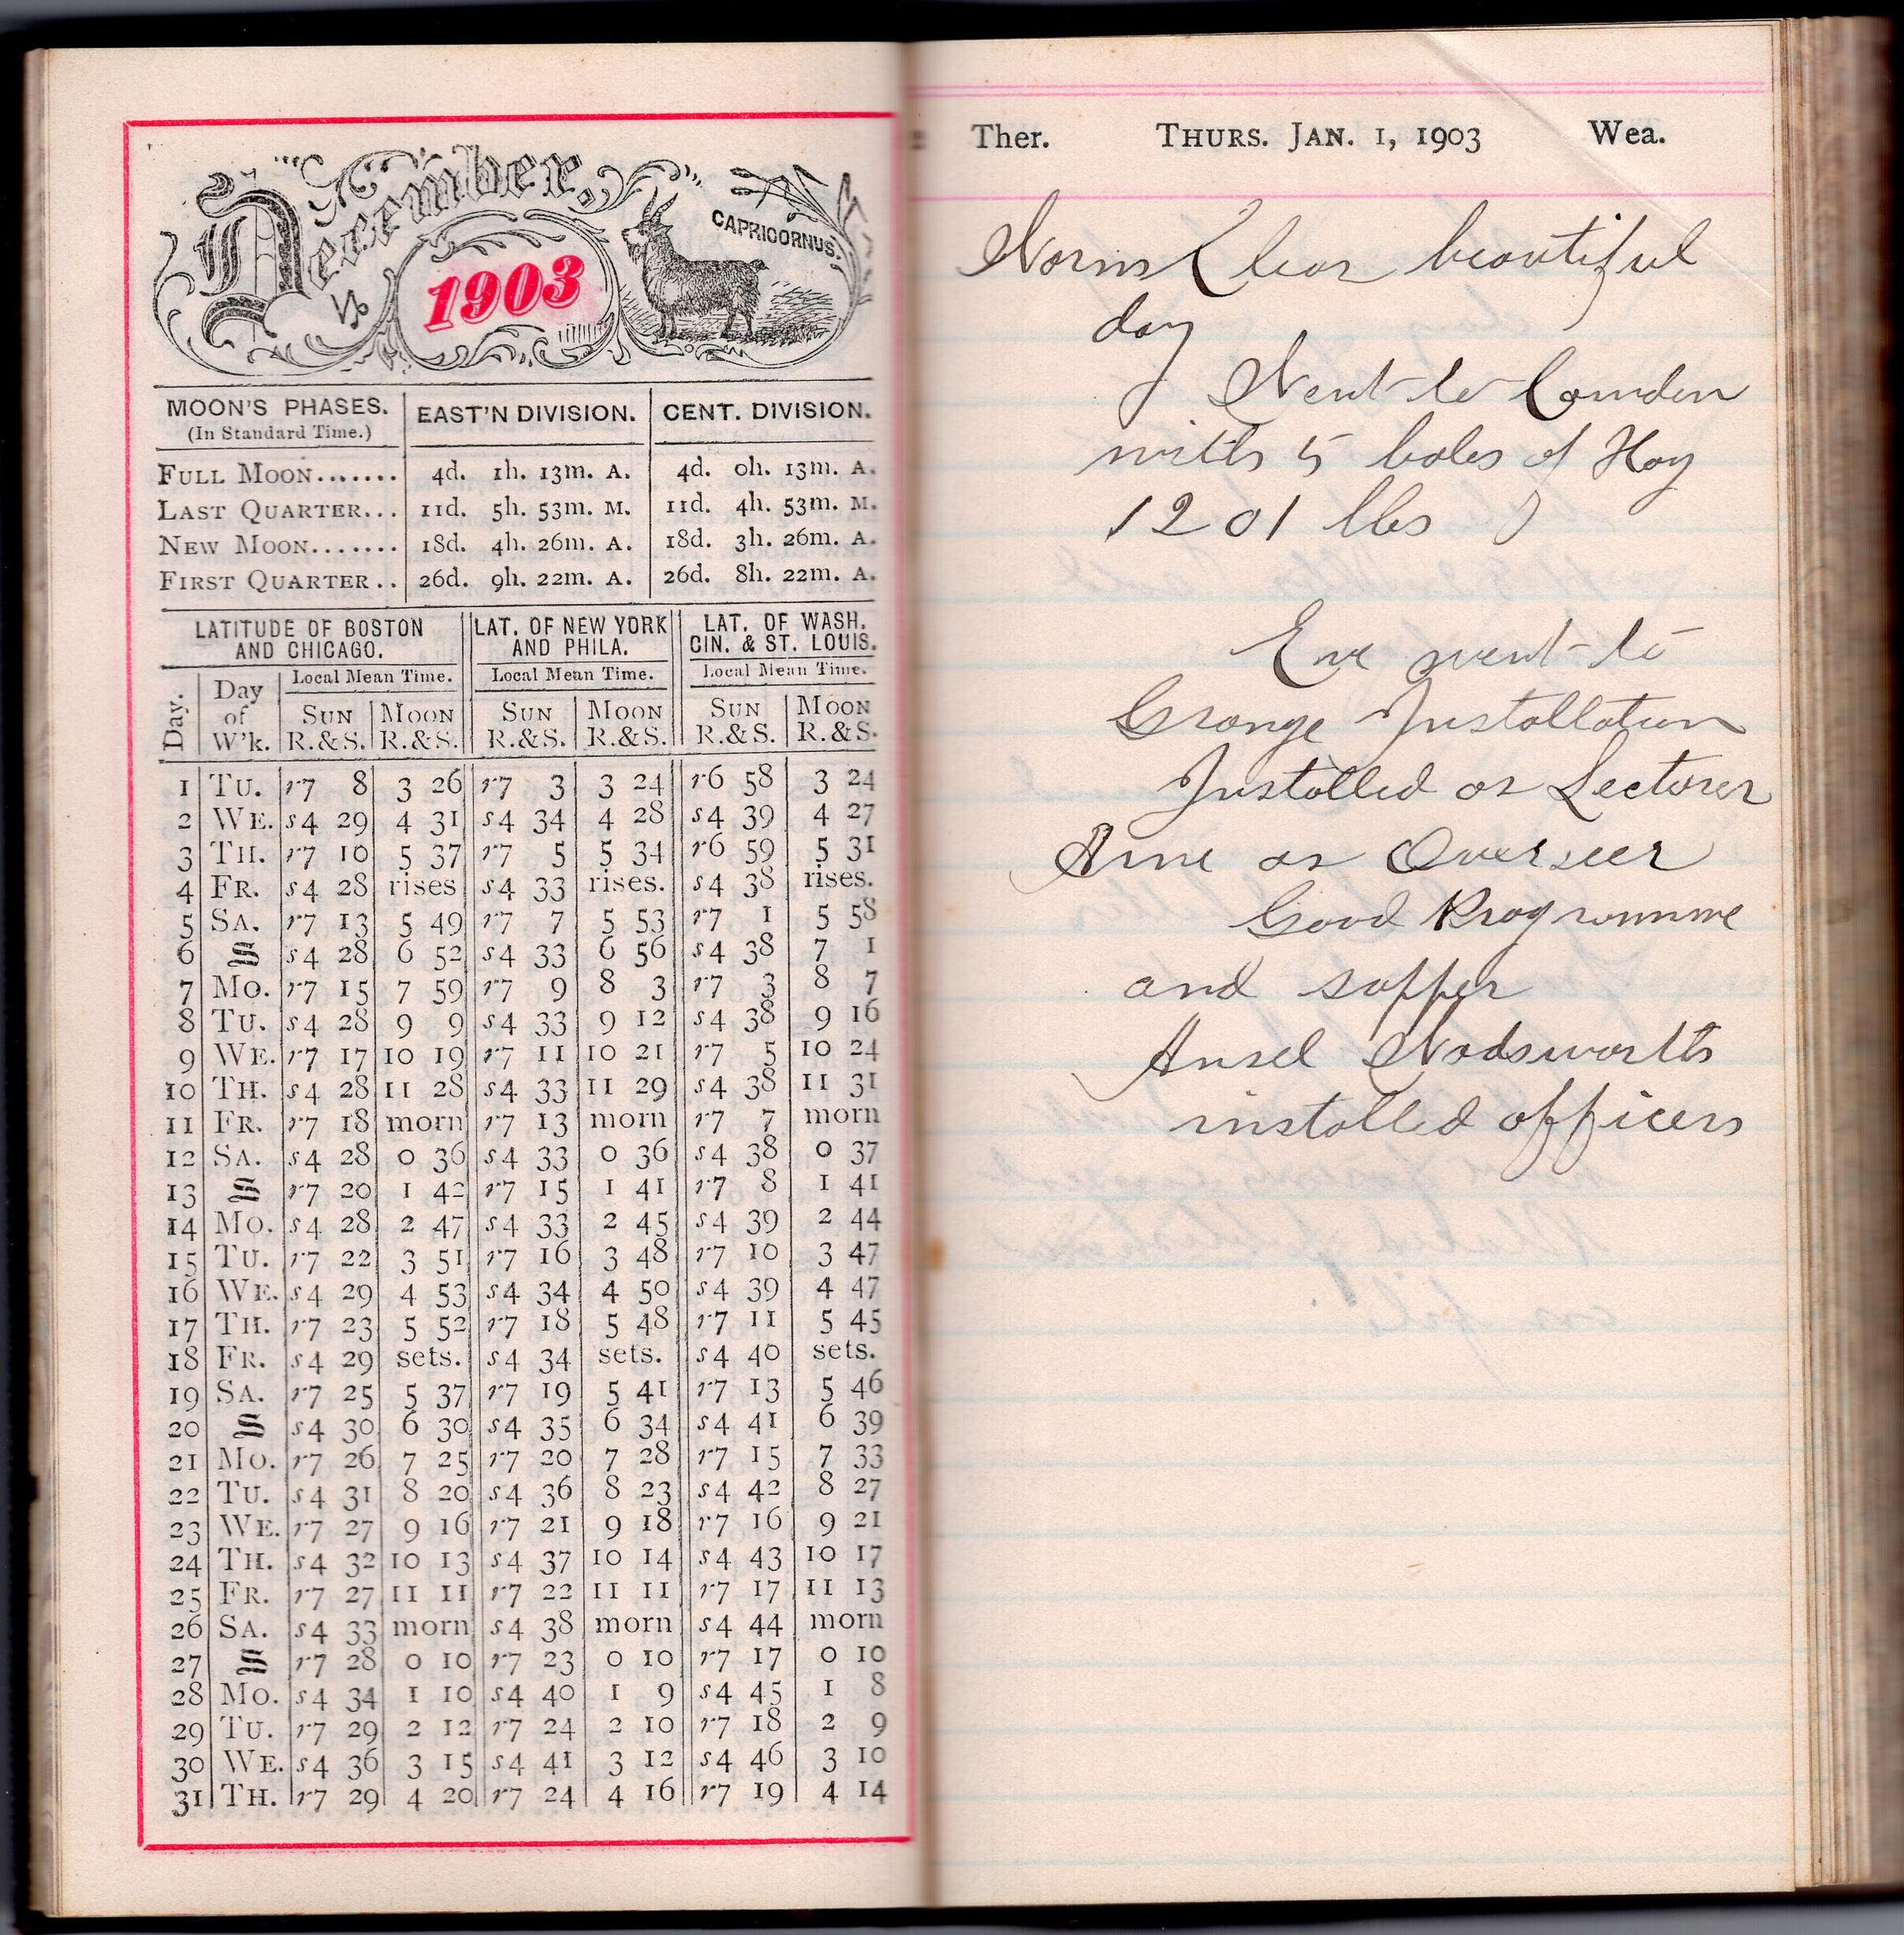 December,
1903
CAPRICORNUS.
MOON'S PHASES. EAST'N DIVISION. CENT. DIVISION.
(In Standard Time.)
FULL MOON....... 4d. 1h. 13m. A. 4d. 0h. 13m. A.
LAST QUARTER... 11d. 5h. 53m. M. 11d. 4h. 53m. M.
NEW MOON....... 18d. 4h. 26m. A. 18d. 3h. 26m. A.
FIRST QUARTER.. 26d. 9h. 22m. A. 26d. 8h. 22m. A.
LATITUDE OF BOSTON LAT. OF NEW YORK LAT. OF WASH.
AND CHICAGO. AND PHILA. CIN. & ST. LOUIS.
Local Mean Time. Local Mean Time. Local Mean Time.
Day. Day of W'k. SUN R.&S. MOON R.&S. SUN R.&S. MOON R.&S. SUN R.&S. MOON R.&S.
1 TU. r7 8 3 26 r7 3 3 24 r6 58 3 24
2 WE. s4 29 4 31 s4 34 4 28 s4 39 4 27
3 TH. r7 10 5 37 r7 5 5 34 r6 59 5 31
4 FR. s4 28 rises s4 33 rises. s4 38 rises.
5 SA. r7 13 5 49 r7 7 5 53 r7 1 5 58
6 S s4 28 6 52 s4 33 6 56 s4 38 7 1
7 MO. r7 15 7 59 r7 9 8 3 r7 3 8 7
8 TU. s4 28 9 9 s4 33 9 12 s4 38 9 16
9 WE. r7 17 10 19 r7 11 10 21 r7 5 10 24
10 TH. s4 28 11 28 s4 33 11 29 s4 38 11 31
11 FR. r7 18 morn r7 13 morn r7 7 morn
12 SA. s4 28 0 36 s4 33 0 36 s4 38 0 37
13 S r7 20 1 42 r7 15 1 41 r7 8 1 41
14 MO. s4 28 2 47 s4 33 2 45 s4 39 2 44
15 TU. r7 22 3 51 r7 16 3 48 r7 10 3 47
16 WE. s4 29 4 53 s4 34 4 50 s4 39 4 47
17 TH. r7 23 5 52 r7 18 5 48 r7 11 5 45
18 FR. s4 29 sets. s4 34 sets. s4 40 sets.
19 SA. r7 25 5 37 r7 19 5 41 r7 13 5 46
20 S s4 30 6 30 s4 35 6 34 s4 41 6 39
21 MO. r7 26 7 25 r7 20 7 28 r7 15 7 33
22 TU. s4 31 8 20 s4 36 8 23 s4 42 8 27
23 WE. r7 27 9 16 r7 21 9 18 r7 16 9 21
24 TH. s4 32 10 13 s4 37 10 14 s4 43 10 17
25 FR. r7 27 11 11 r7 22 11 11 r7 17 11 13
26 SA. s4 33 morn s4 38 morn s4 44 morn
27 S r7 28 0 10 r7 23 0 10 r7 17 0 10
28 MO. s4 34 1 10 s4 40 1 9 s4 45 1 8
29 TU. r7 29 2 12 r7 24 2 10 r7 18 2 9
30 WE. s4 36 3 15 s4 41 3 12 s4 46 3 10
31 TH. r7 29 4 20 r7 24 4 16 r7 19 4 14
Ther. THURS. JAN. 1, 1903 Wea.
Warm Clear beautiful
day
Went to Camden
with 5 bales of Hay
1201 lbs
Eve went to
Grange Installation
Installed as Lecturer
as Overseer
Good Programme
and supper
Ansel Wadsworth
installed officers